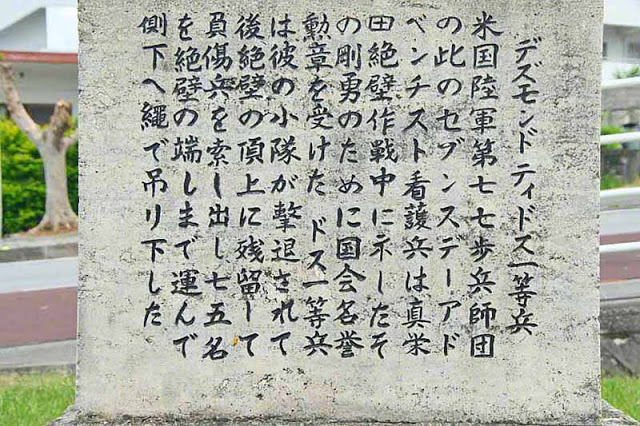 デズモンド ティ ドス一等兵
米国陸軍第七七歩兵師団
の此のセブンスデーアド
ベンチスト看護兵は真栄
田絶壁作戦中に示したそ
の剛勇のために国会名誉
勲章を受けた ドス一等兵
は彼の小隊が撃退されて
後絶壁の頂上に残留して
負傷兵を索し出し七五名
を絶壁の端しまで運んで
側下へ繩で吊り下した